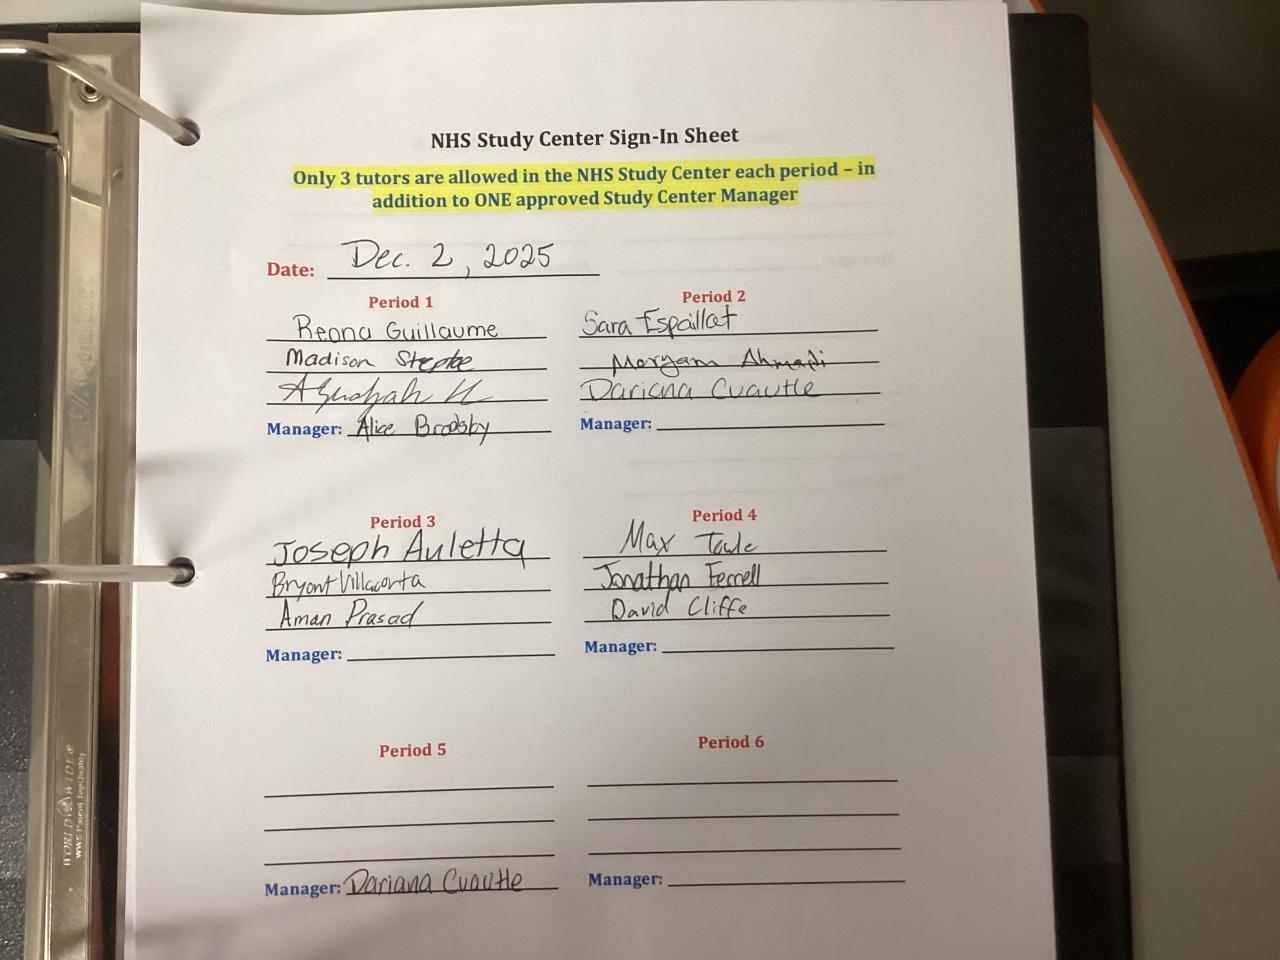 NHS Study Center Sign-In Sheet
Only 3 tutors are allowed in the NHS Study Center each period – in
addition to ONE approved Study Center Manager
Date: Dec. 2, 2025
Period 1
Reona Guillaume
Madison
Manager: Alice Brodsby
Period 2
Sara Espaillat
Maryam Ahmadi
Dariana Cuautle
Manager:
Period 3
Joseph Auletta
Bryant Villacorta
Aman Prasad
Manager:
Period 4
Max Towle
Jonathan Ferrell
David Cliffe
Manager:
Period 5
Manager: Dariana Cuautle
Period 6
Manager:
WORLD WIDE®